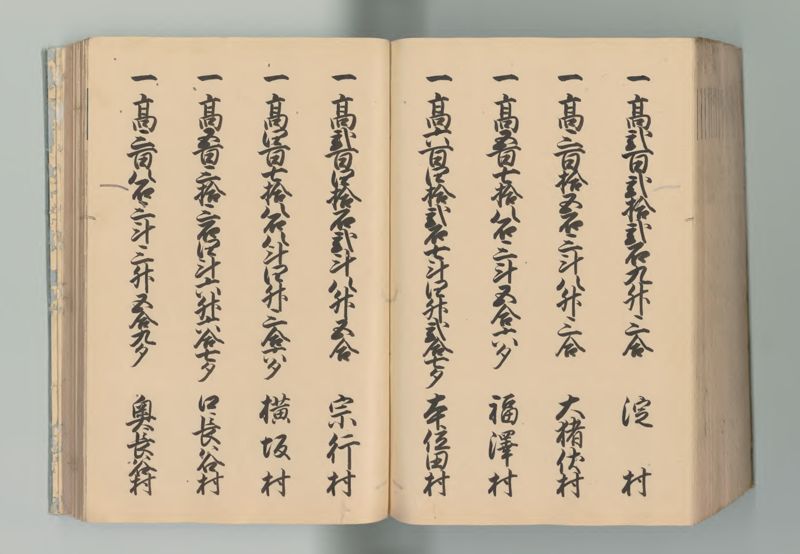 一 高弐百弐拾弐石九升三合 淀村
一 高三百拾五石三斗八升三合 大猪伏村
一 高五百七拾八石三斗五合六夕 福澤村
一 高六百四拾弐石七斗四升弐合七夕 本位田村
一 高弐百四拾石弐斗八升五合 宗行村
一 高四百七拾八石八斗四升三合六夕 横坂村
一 高五百三拾三石四斗六升六合七夕 口長谷村
一 高三百八石三斗三升五合九夕 奥長谷村